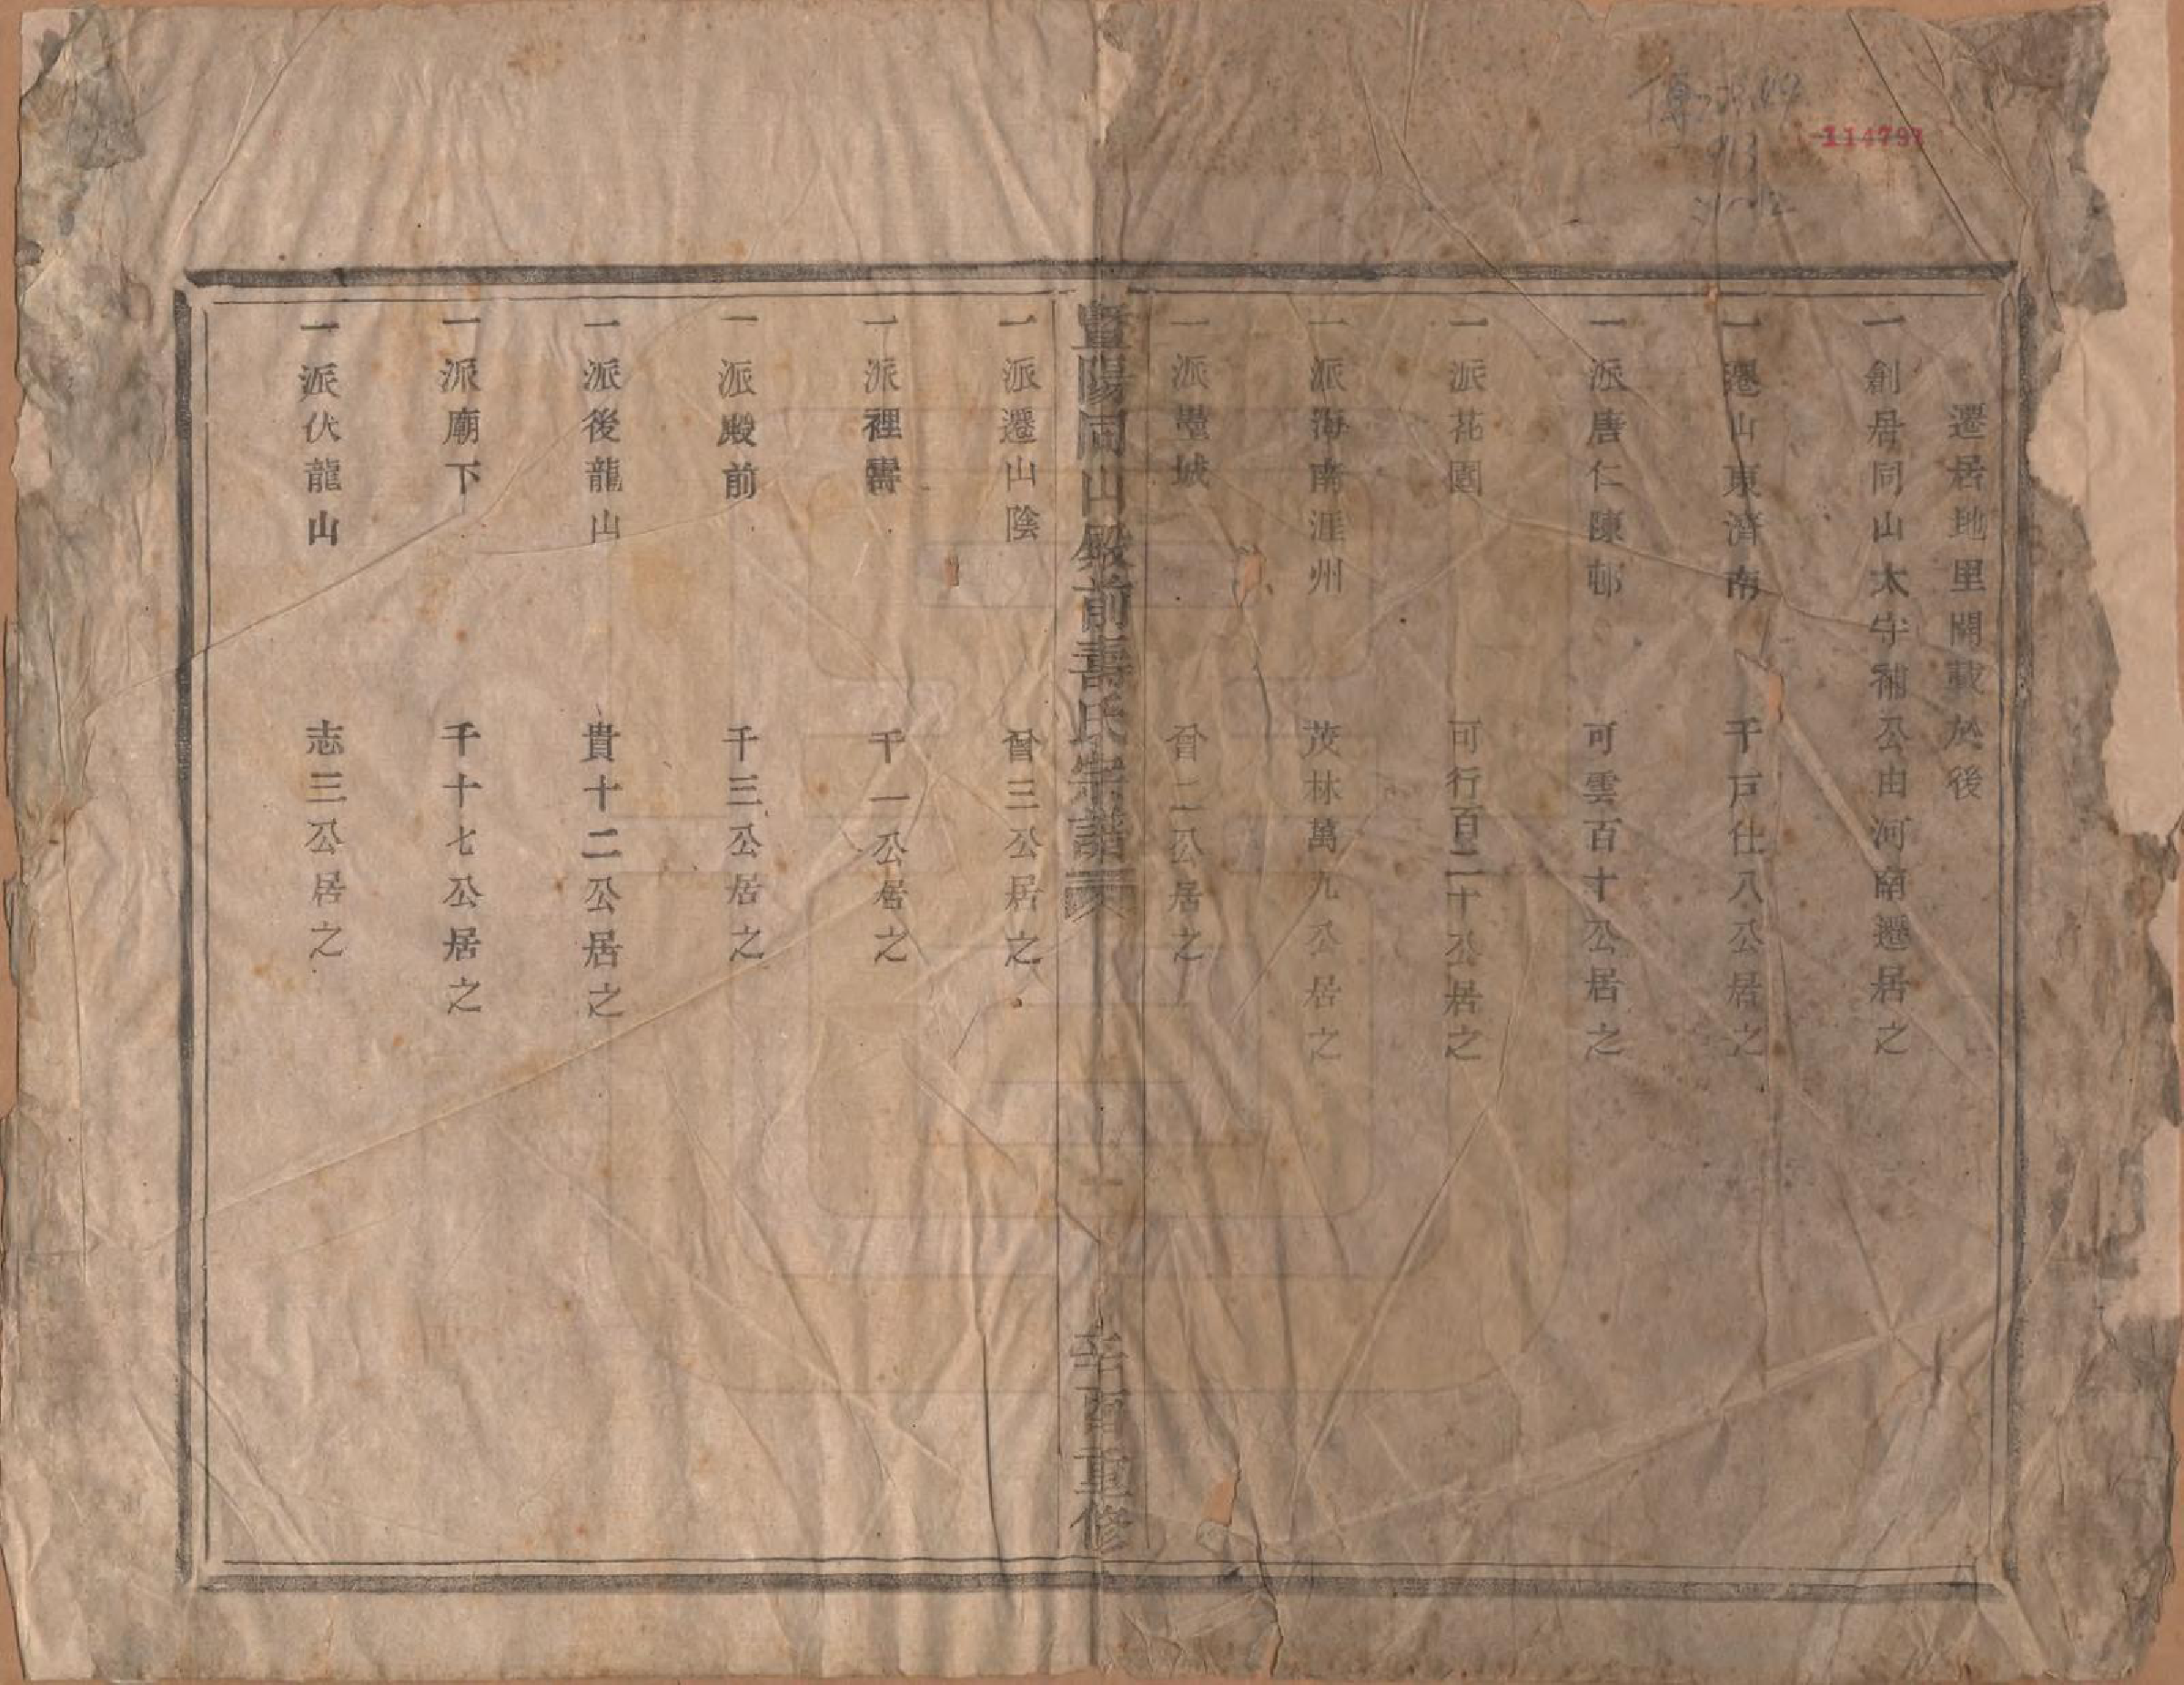 114791
遷居地里開載於後
一創居同山太守補公由河南遷居之
一遷山東濟南 千戸仕八公居之
一派唐仁陳邨 可雲百十公居之
一派花園 可行百二十公居之
一派海南涯州 茂林萬九公居之
一派墨城 晉二公居之
暨陽同山殿前壽氏宗譜 一 辛酉重修
一派遷山陰 晉三公居之
一派裡 千一公居之
一派殿前 千三公居之
一派後龍山 貴十二公居之
一派廟下 千十七公居之
一派伏龍山 志三公居之